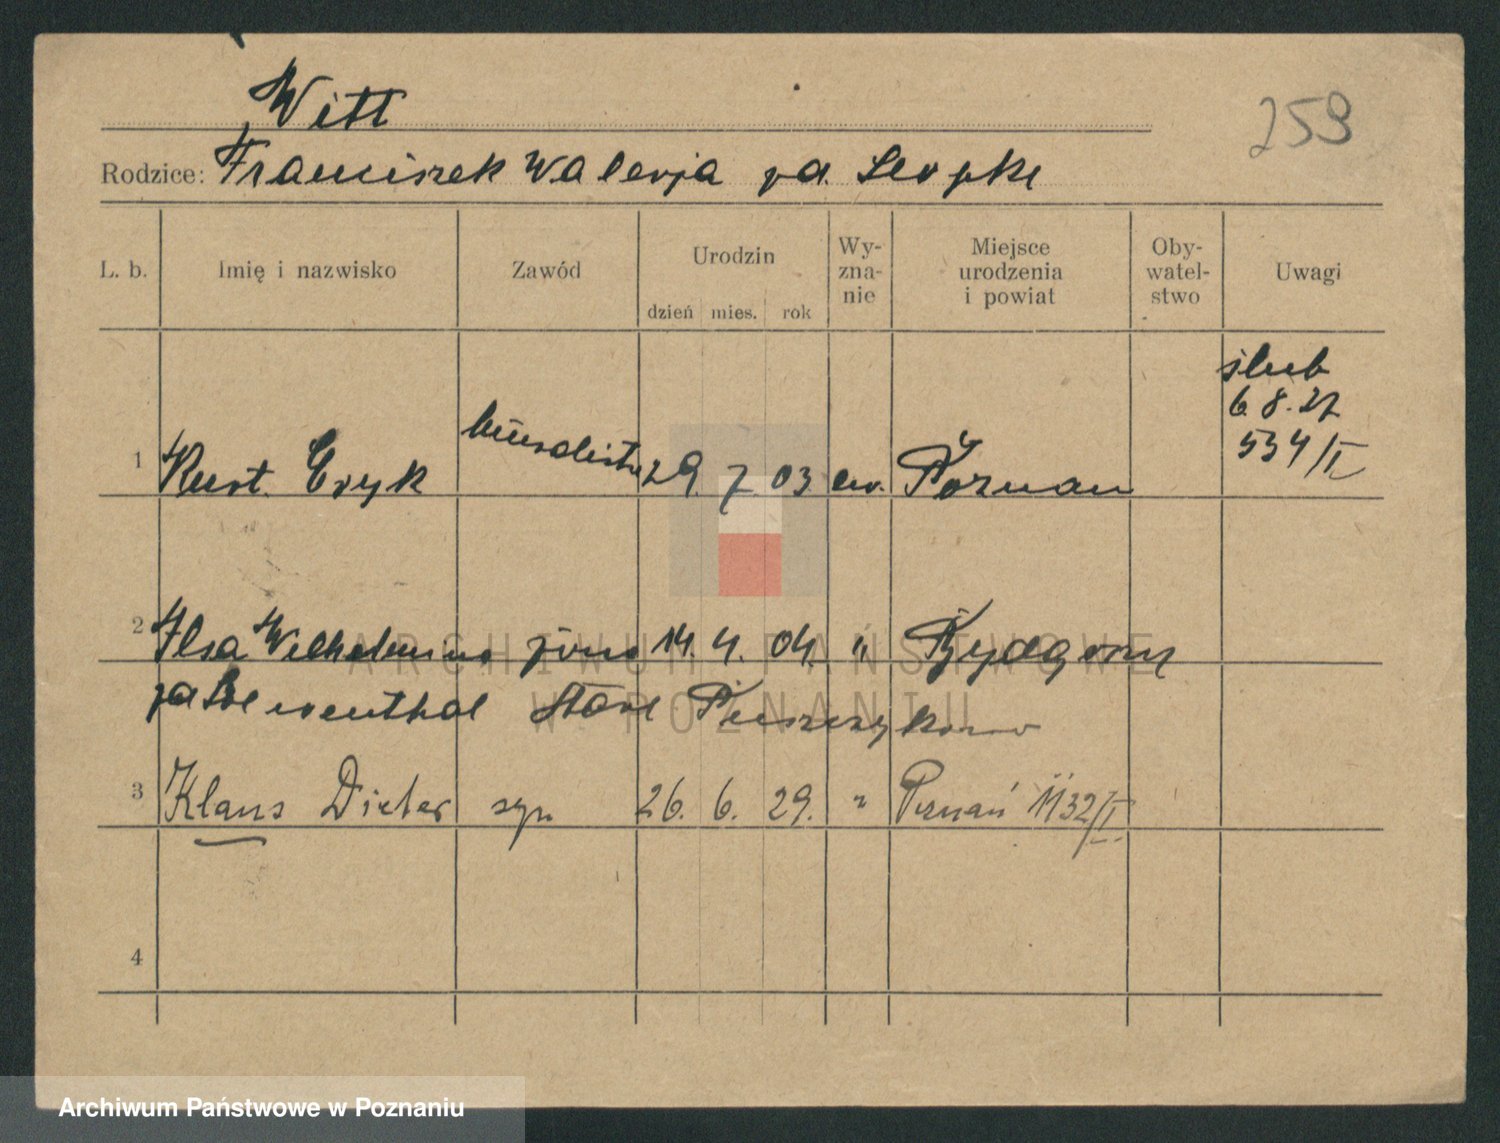 Witt
259
Rodzice: Franciszek Walerja
L. b. Imię i nazwisko Zawód Urodzin dzień mies. rok Wy-zna-nie Miejsce urodzenia i powiat Oby-watel-stwo Uwagi
ślub
6.8.27
534/II
1 Kurt Eryk biuralista 29. 7 03 ew. Poznań
2 Ilsa Wilhelmina żona 14. 4. 04. " Bydgoszcz
Stare Puszczykowo
3 Klaus Dieter syn 26. 6. 29. " Poznań 1132/II
4
ARCHIWUM PAŃSTWOWE
W POZNANIU
Archiwum Państwowe w Poznaniu